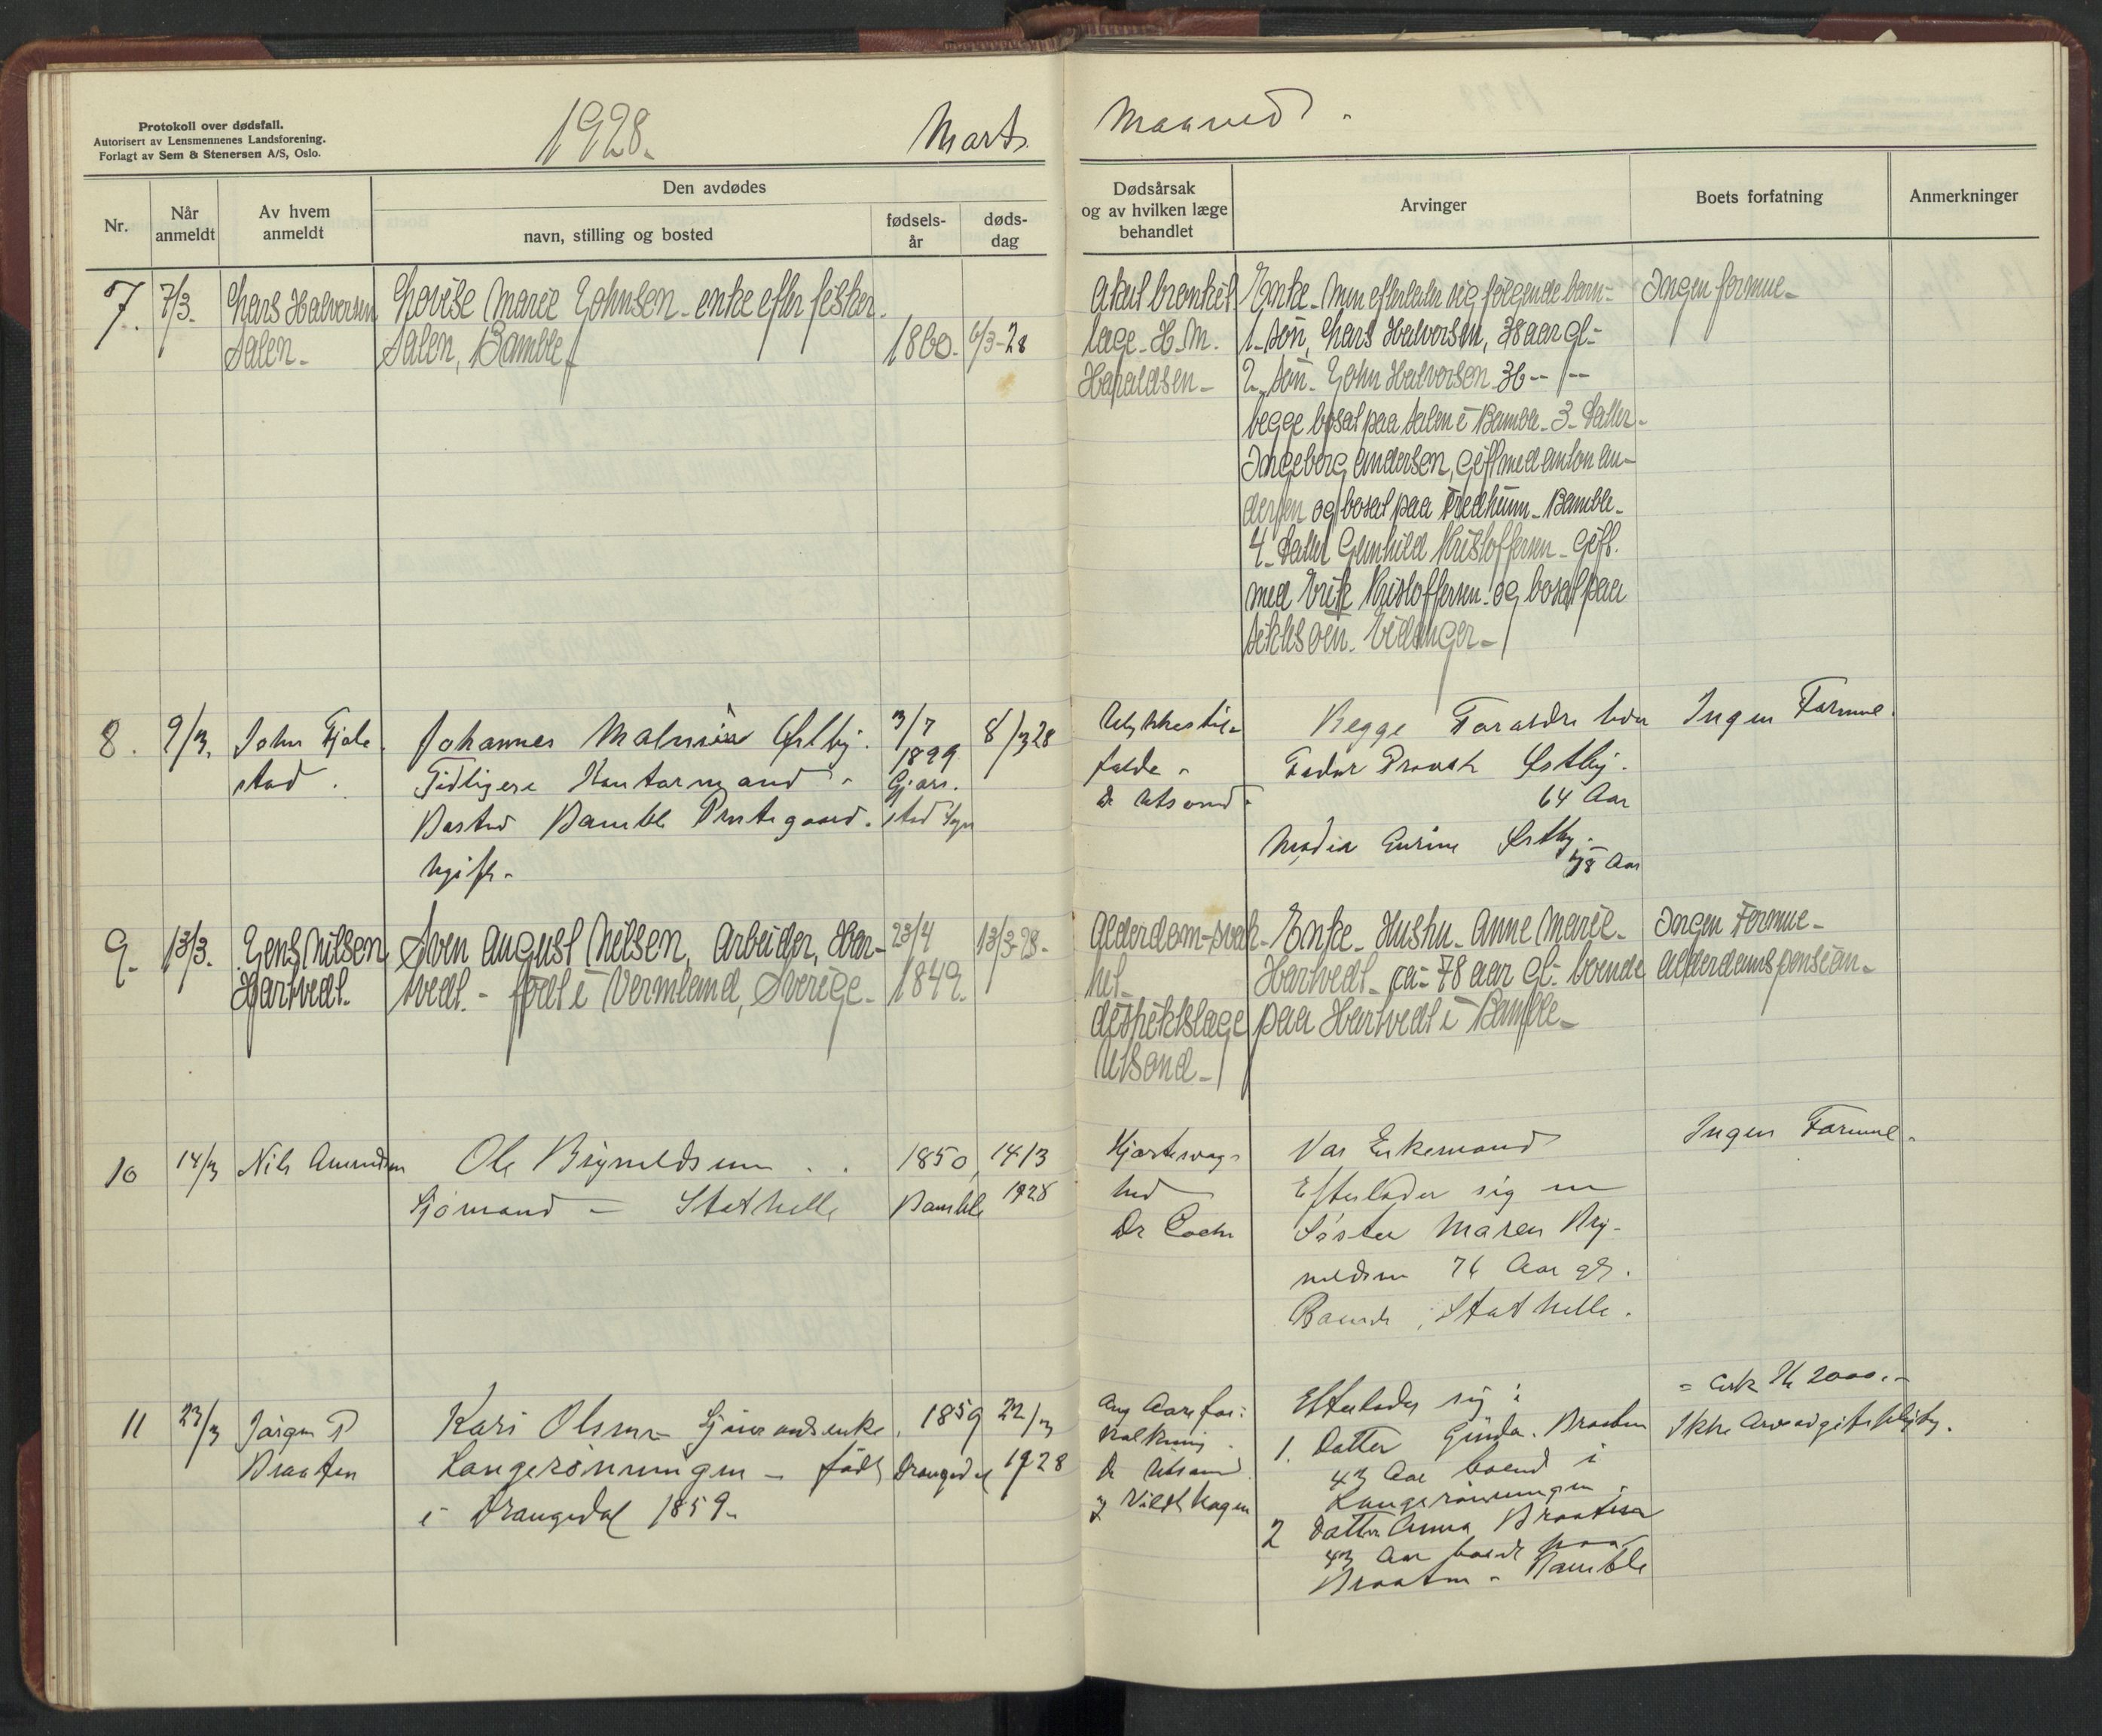 Protokoll over dødsfall.
Autorisert av Lensmennenes Landsforening.
Forlagt av Sem & Stenersen A/S, Oslo.
1928. Marts Maaned.
Nr.
Når anmeldt
Av hvem anmeldt
Den avdødes
navn, stilling og bosted
fødsels-
år
døds-
dag
Dødsårsak
og av hvilken læge
behandlet
Arvinger
Boets forfatning
Anmerkninger
7. 7/3. Lars Halvorsen
Salen.
Lovise Marie Johnsen - enke efter fisker.
Salen, Bamble
1860. 6/3-28
Akut bronkit
læge H. M.
Haraldsen -
Enke - Men efterlater sig følgende barn:
1. søn, Lars Halvorsen, 38 aar gl -
2. søn - John Halvorsen 36 -"-
begge bosat paa Salen i Bamble - 3. Datter -
Ingeborg Andersen, gift med Anton An-
dersen og bosat paa Fredheim - Bamble -
4. Datter Gunhild Kristoffersen - Gift
med Erik Kristoffersen og bosat paa
Eidanger -
Ingen formue -
8. 9/3. John Fjele
stad.
Johannes Østby.
Tidligere Kontormand.
Bosted Bamble Prestegaard.
Ugift.
3/7
1899
Gjers.
stad Sogn
8/3 28
Ulykkestil-
fælde.
Dr Utsond.
Begge Forældre lever
Fader Provst Østby.
64 Aar
Moder Østby.
Aar
Ingen Formue.
9. 13/3. Jens Nilsen
Hartvedt.
Sven August Nilsen, Arbeider, Har-
tvedt. - født i Vermland, Sverige.
23/4
1849.
13/3-28.
Alderdom-svak-
het -
distriktslæge
Utsond -
Enke - Hustru - Anne Marie -
Hartvedt - ca - 78 aar gl - boende
paa Hartvedt i Bamble -
Ingen Formue -
alderdomspension -
10 14/3 Nils Amundsen
Ole Brynildsen
Sjømand - Stathelle
1850,
Bamble
14/3
1928
Hjertesvag-
hed
Dr
Var Enkemand
Efterlader sig en
Søster Maren Bry-
nildsen 76 Aar gl.
Boende, Stathelle.
Ingen Formue.
11 23/3 Jørgen P
Braaten
Kari Olsen Sjømandsenke,
Langerønningen - født
i Drangedal 1859.
1859
Drangedal
22/3
1928
Aarefor:
kalkning.
Dr Utsond
og Vildthagen
Efterlader sig:
1. Datter Braaten
43 Aar boend i
Langerønningen.
2 Datter Anna Braaten
43 Aar boende paa
Braaten - Bamble
= cirk Kr 2000.-
Ikke Arveavgiftspligtig.